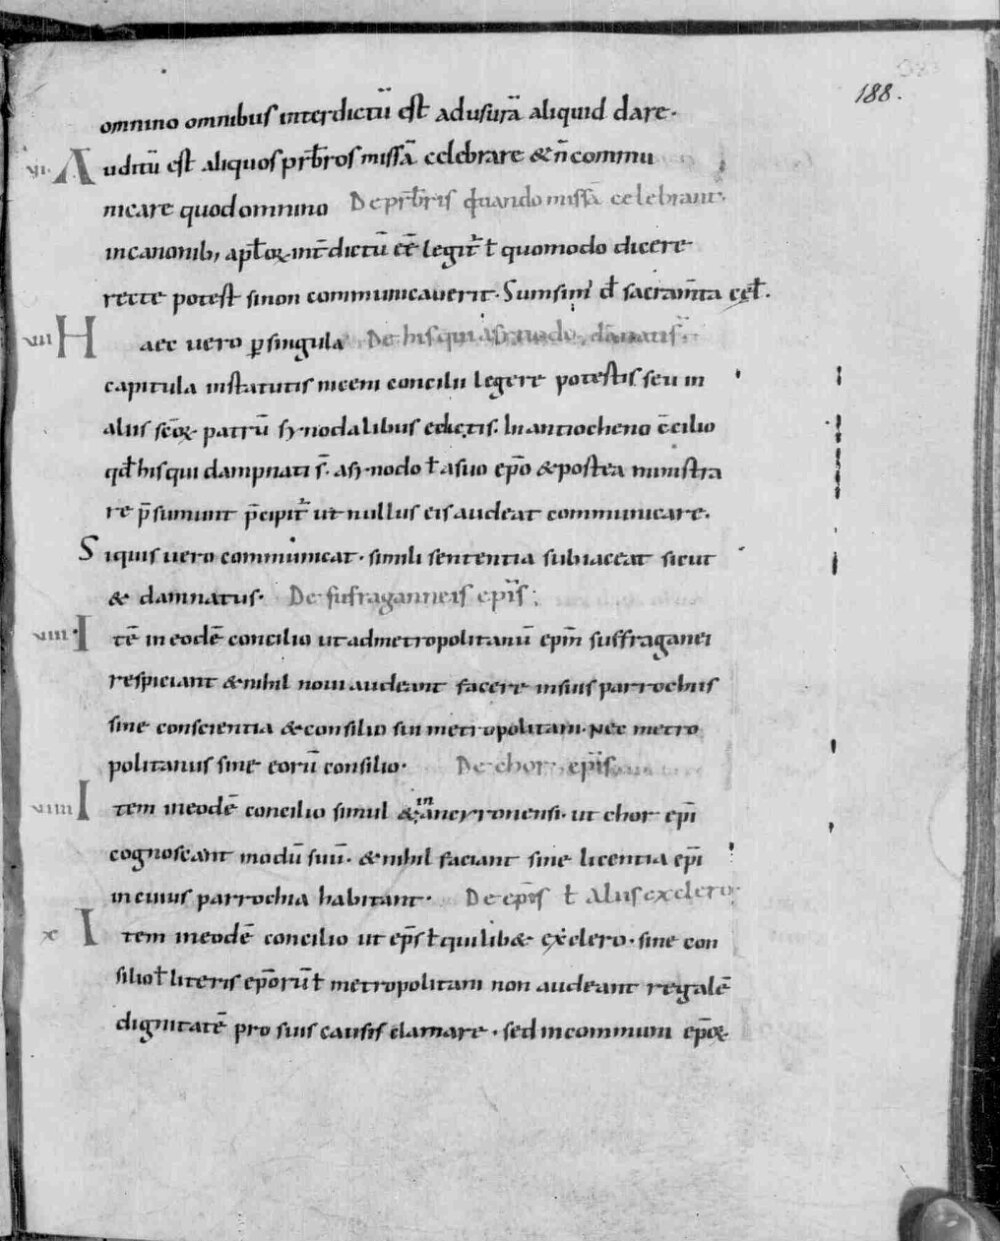 188.
omnino omnibus interdictū est ad usurā aliquid dare.
VI. Auditū est aliquos prb̄ros missā celebrare & n̄ commu
nicare quod omnino De prb̄ris quando missā celebrant.
in canonib; apl̄oꝝ int̄dictū eē legit̄ ł quomodo dicere
recte potest si non communicaverit. Sumsim᷒ đ sacram̄ta cęł.
VII Haec uero ꝑ singula De his qui a synodo dānati s̄.
capitula in statutis niceni concilii legere potestis seu in
aliis sc̄oꝝ patrū synodalibus edictis. In antiocheno c̄cilio
qđ his qui dampnati s̄. a synodo ł a suo ep̄o & postea ministra
re p̄sumunt p̄cipit᷑ ut nullus eis audeat communicare.
Siquis uero communicat. simili sententia subiaceat sicut
& damnatus. De sufraganneis ep̄is:
VIII Itē in eodē concilio ut ad metropolitanū ep̄m suffraganei
respiciant & nihil noui audeant facere in suis parrochiis
sine conscientia & consilio sui metropolitani. Nec metro
politanus sine eorū consilio. De chor. ep̄is.
VIIII Item in eodē concilio simul & in ancyronensi. ut chor ep̄i
cognoscant modū suū. & nihil faciant sine licentia ep̄i
in cuius parrochia habitant. De ep̄is ł aliis ex clero.
X Item in eodē concilio ut ep̄s ł quilib& ex clero. sine con
silio ł literis ep̄orū ł metropolitani non audeant regalē
dignitatē pro suis causis clamare. sed in communi ep̄oꝝ